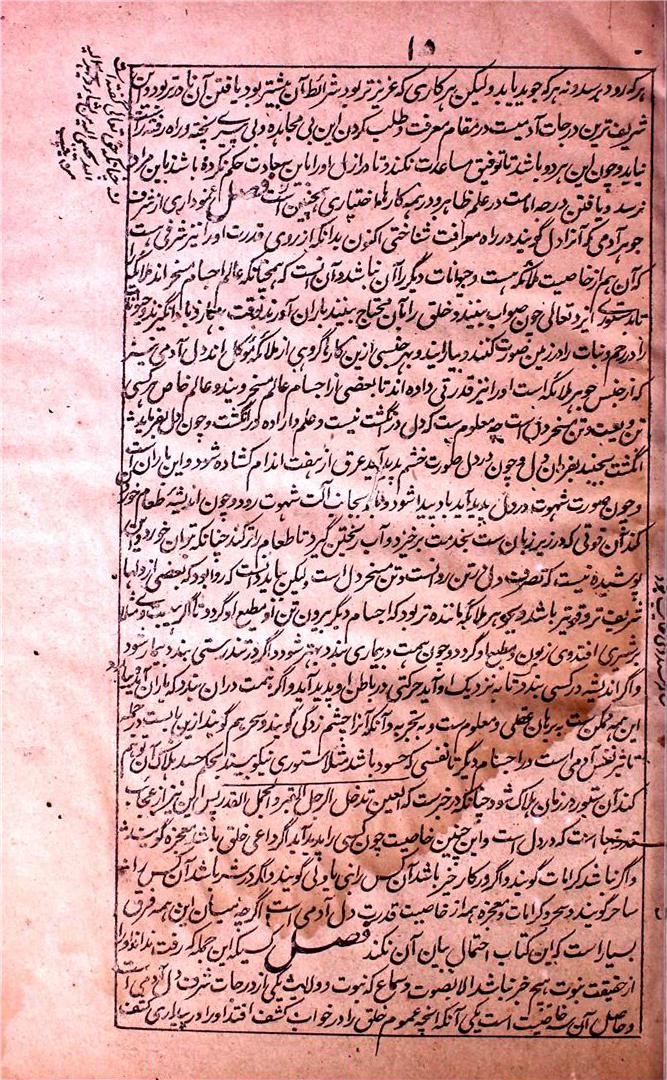 ۱۵
هر که رود برسد و نه هر که جوید یابد ولیکن هر کاری که عزیزتر بود شرائط آن بیشتر بود و یافتن آن نادرتر بود و این
شریف‌ترین درجات آدمیست در مقام معرفت و طلب کردن این بی مجاهده و بی پیری پخته و راه رفته راست
نیاید و چون این هر دو باشد تا توفیق مساعدت نکند و تا در ازل او را باین سعادت حکم نکرده باشند باین مراد
نرسد و یافتن درجه امامت در علم ظاهر و در همه کارها اختیاری همچنین است فصل نموداری از شرف
جوهر آدمی که آنرا دل گویند در راه معرفت شناختی اکنون بدانکه از روی قدرت او را نیز شرفی هست
که آن هم از خاصیت ملائکه است و حیوانات دیگر را آن نباشد و آن آنست که همچنانکه عالم اجسام مسخر اند ملائکه را
تا بدستوری ایزد تعالی چون صواب بینند و خلق را بآن محتاج بینند باران آورند بوقت بهار و باد انگیزند و حیوان
را در رحم و نبات را در زمین صورت کنند و بیارایند و بهر جنسی ازین کارها گروهی از ملائکه موکل اند دل آدمی نیز
که از جنس جوهر ملائکه است او را نیز قدرتی داده اند تا بعضی از اجسام عالم مسخر ویند و عالم خاص هر کسی
تن ویست و تن مسخر دل است چه معلوم است که دل در انگشت نیست و علم و اراده در انگشت و چون دل بفرماید
انگشت بجنبد بفرمان دل و چون در دل صورت خشم پدید آید عرق از هفت اندام گشاده شود و این باران است
و چون صورت شهوت در دل پدید آید بادی پیدا شود و بجانب آلت شهوت رود و چون اندیشه طعام خوردن
کند آن قوتی که در زیر زبان است بخدمت برخیزد و آب ریختن گیرد تا طعام را تر کند چنانکه توان خورد و این
پوشیده نیست که تصرف دل در تن روانست و تن مسخر دل است ولیکن بباید دانست که روا بود که بعضی از دلها
شریف‌تر و قوی‌تر باشد و بجوهر ملائکه ماننده‌تر بود که اجسام دیگر بیرون تن او مطیع او گردد تا اگر هیبت وی مثلا
بر شیری افتد وی زبون و مطیع او گردد و چون همت در بیماری بندد بهتر شود و اگر در تندرستی بندد بیمار شود
و اگر اندیشه در کسی بندد تا به نزدیک او آید حرکتی در باطن او پدید آید و اگر همت در آن بندد که باران آید بیاید
این همه ممکن ست ببرهان عقلی و معلوم ست به تجربه و آنکه آنرا چشم زدگی گویند و سحر هم گویند ازین بابست و از جمله
تاثیر نفس آدمی است در اجسام دیگر تا نفسی که حسود باشد مثلا ستوری نیکو بیند بحکم حسد هلاک آن توهم
کند آن ستور در زمان هلاک شود چنانکه در خبرست که العین تدخل الرجل القبر و الجمل القدر پس این نیز از عجائب
قدرتها است که در دل است و این چنین خاصیت چون کسی را پدید آید اگر داعی خلق باشد معجزه گویند
و اگر نباشد کرامات گویند و اگر در کار خیر باشد آن کس را نبی یا ولی گویند و اگر در شر باشد آن کس را
ساحر گویند و سحر و کرامات و معجزه همه از خاصیت قدرت دل آدمی است اگرچه میان این همه فرق
بسیار است که این کتاب احتمال بیان آن نکند فصل کسیکه این جمله که رفت نداند او را
از حقیقت نبوت هیچ خبر نباشد الا بصورت و سماع که نبوت و ولایت یکی از درجات شرف دل آدمی است
و حاصل آن سه خاصیت است یکی آنکه آنچه عموم خلق را در خواب کشف افتد او را در بیداری کشف